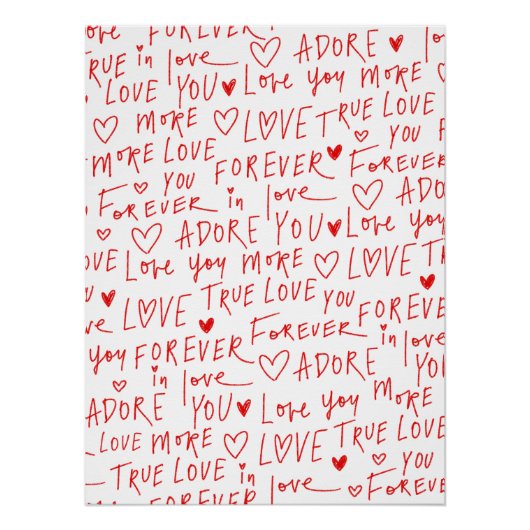 FOREVER in love
TRUE in love ADORE
LOVE YOU Love you more
MORE LOVE TRUE LOVE
MORE LOVE YOU
YOU FOREVER FOREVER
FOREVER in love ADORE
ADORE YOU Love you
OVE Love you MORE LOVE
LOVE TRUE LOVE YOU
ve FOREVER FOREVER
you FOREVER ADORE in love YOU
in love
ADORE YOU Love you MORE
LOVE MORE LOVE TRUE LOVE
TRUE LOVE in love YOU
FOREVER